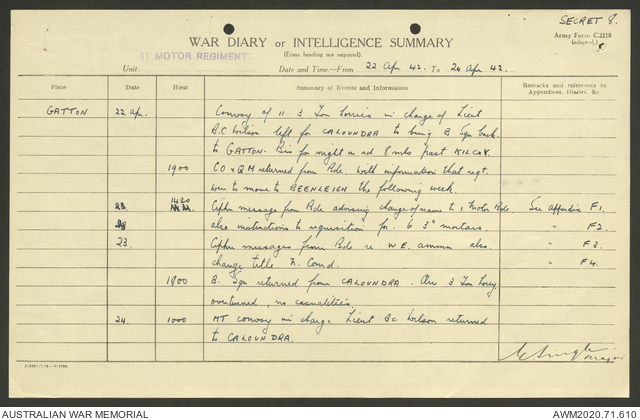 SECRET 8.
Army Form C.2118
(adapted.)
WAR DIARY or INTELLIGENCE SUMMARY
(Erase heading not required).
Unit 11 MOTOR REGIMENT. Date and Time—From 22 Apr 42. To 24 Apr 42.
Place Date Hour Summary of Events and Information Remarks and references to
Appendices, Diaries, &c
GATTON 22 Apr. Convoy of 11 3 Ton lorries in charge of Lieut
B.C. Wilson left for CALOUNDRA to bring B Sqn back
to GATTON. Biv for night on rd 8 mls past KILCOY.
1900 CO & QM returned from Bde with information that regt.
were to move to BEENLEIGH the following week.
23 1430 Ciph message from Bde advising change of name to 1 Motor Bde. See appendix F1.
also instructions to requisition for 6 3" mortars. " F2.
23. Ciph messages from Bde re W.E. ammn also " F3.
change title Comd. " F4.
1800 B. Sqn returned from CALOUNDRA. One 3 Ton lorry
overturned, no casualties.
24. 1000 MT convoy in charge Lieut BC Wilson returned
to CALOUNDRA.
Major
AUSTRALIAN WAR MEMORIAL
AWM2020.71.610